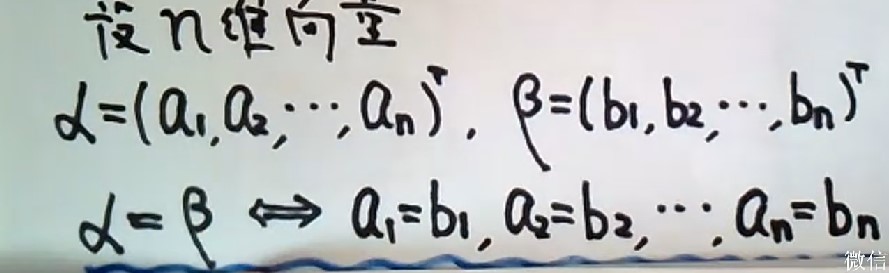 设n维向量
α=(a₁,a₂,⋯,aₙ)ᵀ, β=(b₁,b₂,⋯,bₙ)ᵀ
α=β ⇔ a₁=b₁,a₂=b₂,⋯,aₙ=bₙ
微信